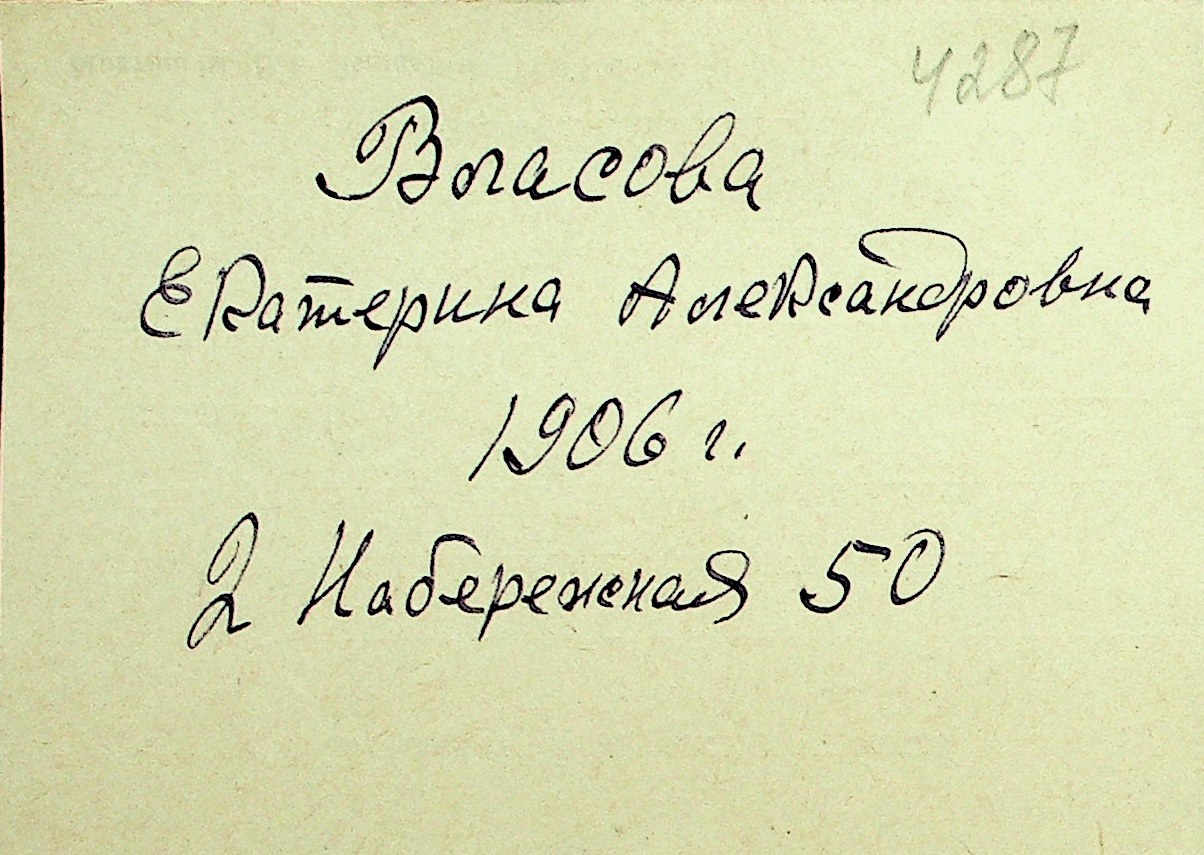 4287
Власова
Екатерина Александровна
1906 г.
2 Набережная 50